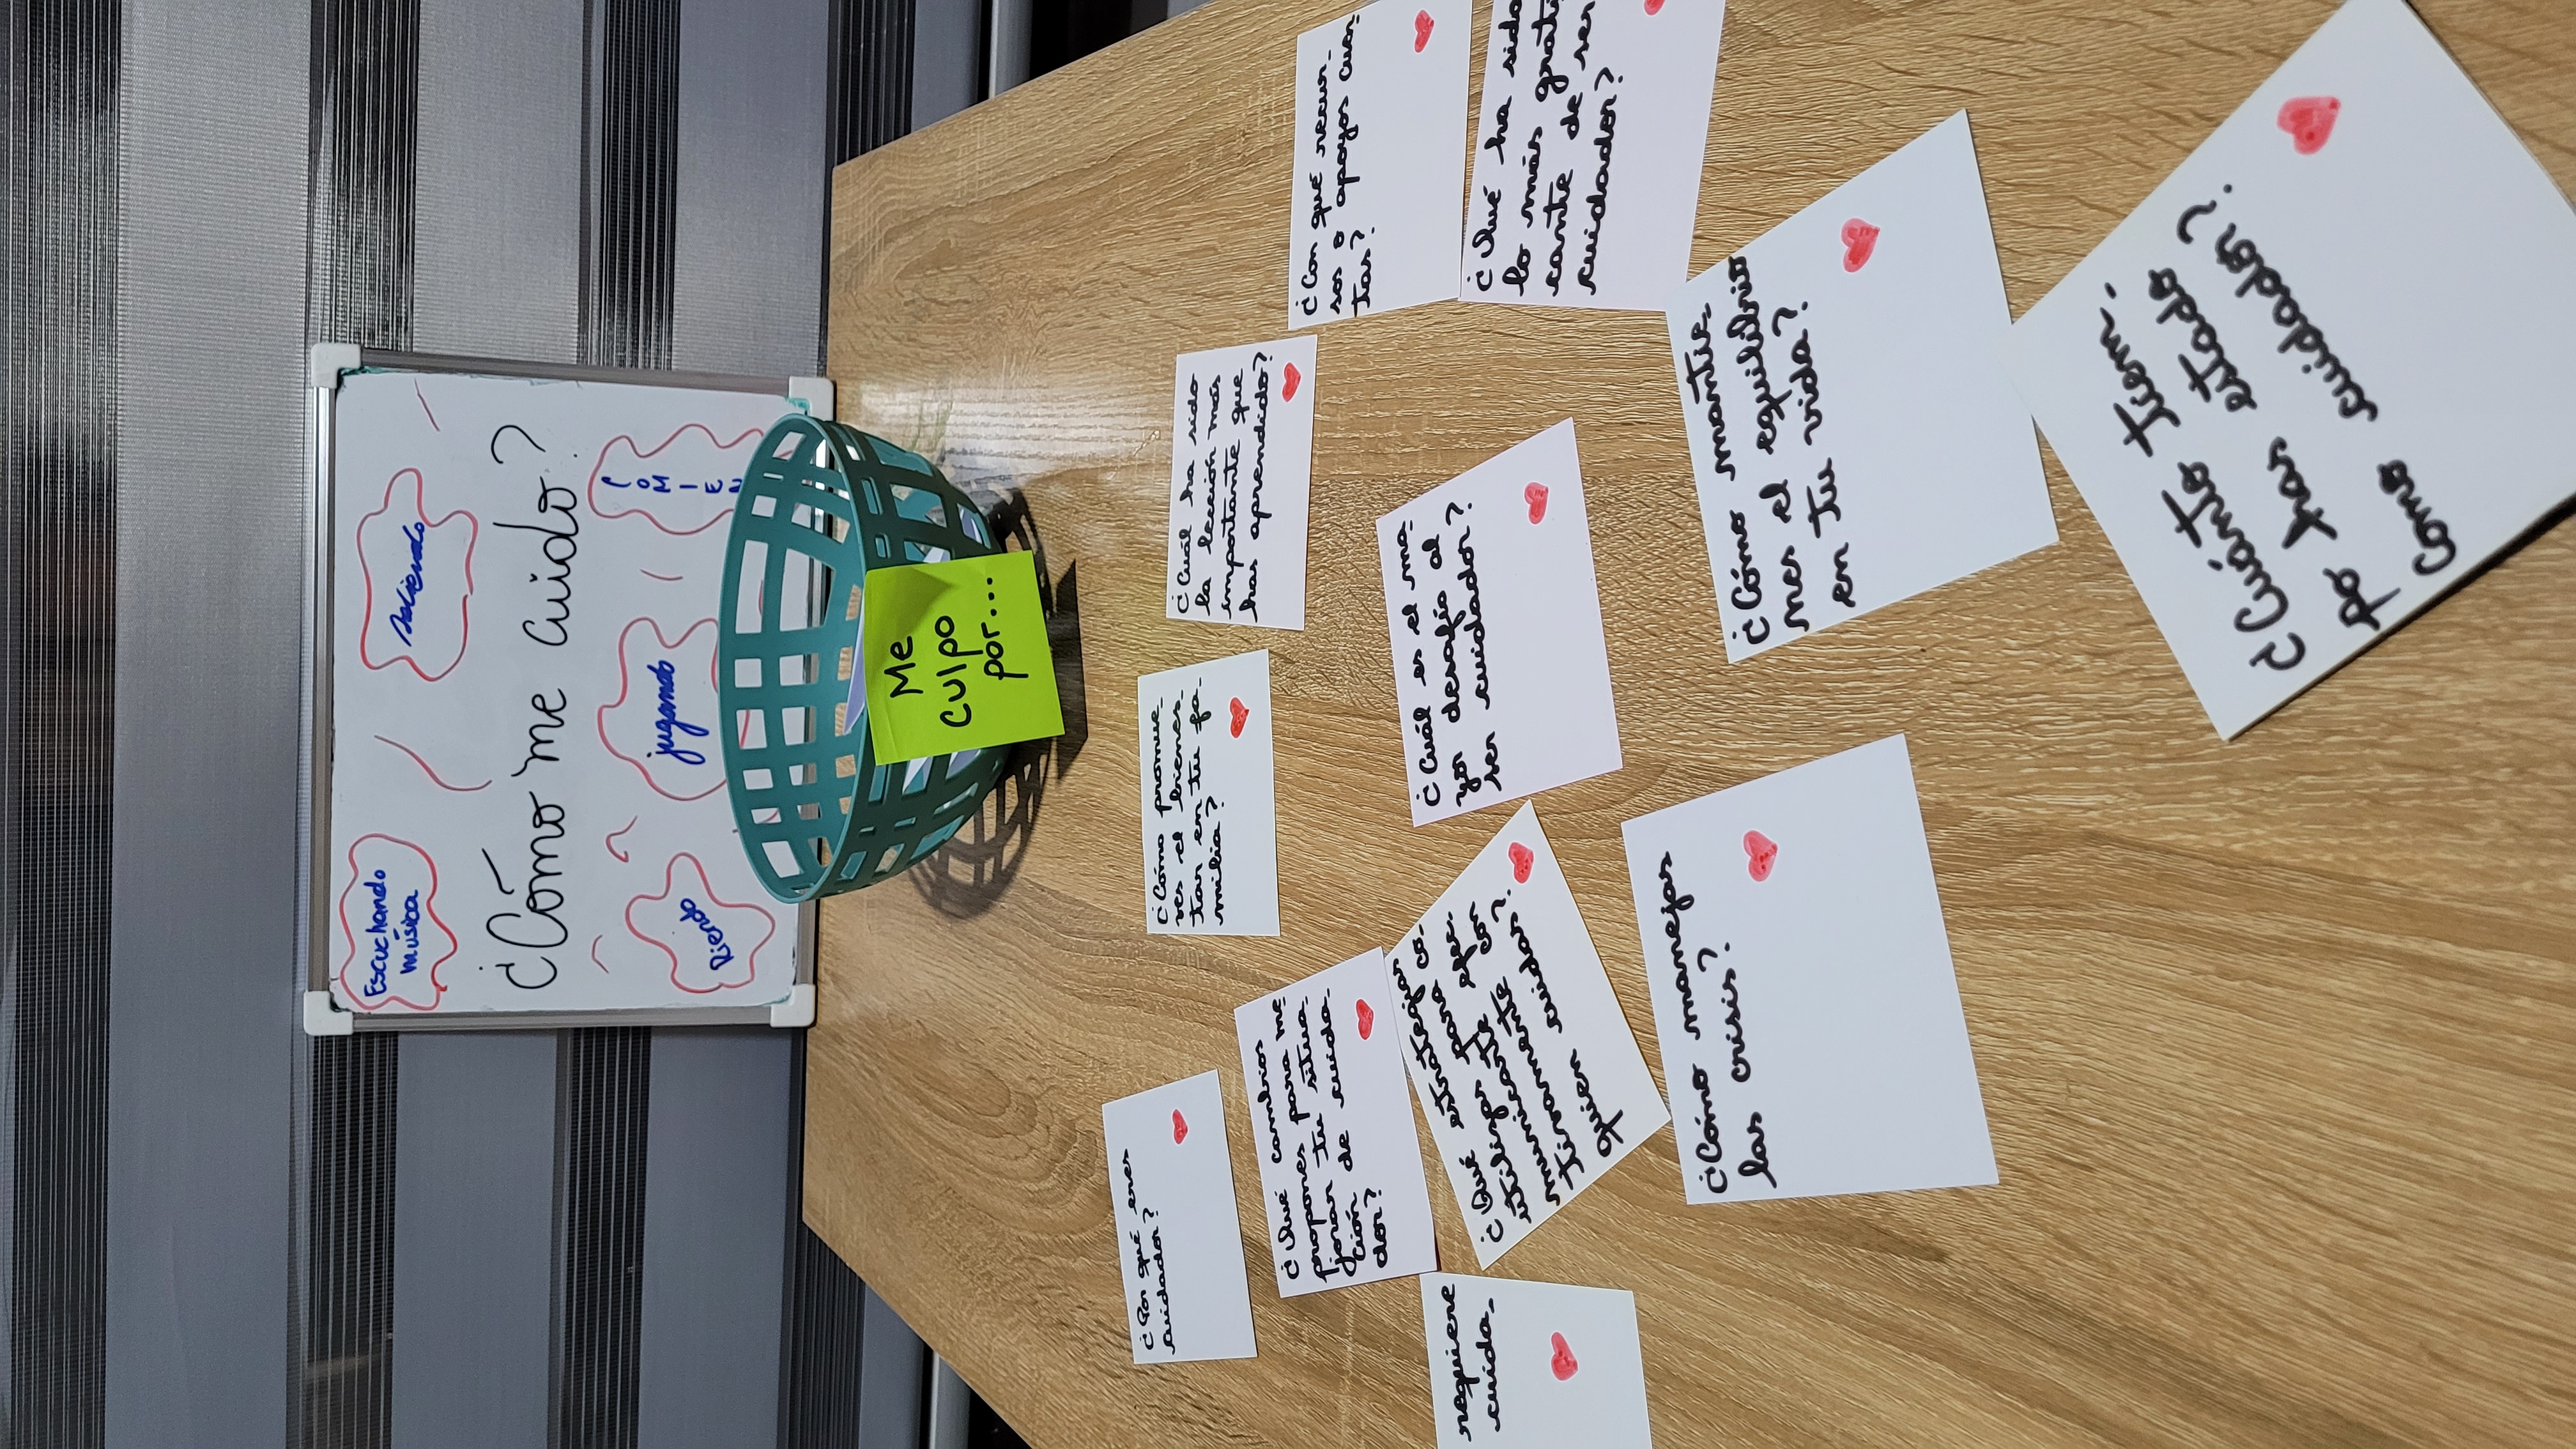 Escuchando
música
Saliendo
¿Cómo me cuido?
Riendo
jugando
COMIEN
Me
Culpo
por...
¿Por qué eres
cuidador?
¿Cómo promue-
ves el bienes-
tar en tu fa-
milia?
¿Cuál ha sido
la lección más
importante que
has aprendido?
¿Qué cambios
propones para me
jorar tu situa-
ción de cuida-
dor?
¿Con qué recur-
sos o apoyos cuen-
tas?
requiere
cuida-
¿Qué estrategias
utilizas para co-
municarte efec-
tivamente con
quien cuidas?
¿Cuál es el ma-
yor desafío al
ser cuidador?
¿Qué ha sido
lo más grati
cante de ser
cuidador?
¿Cómo manejas
las crisis?
¿Cómo mantie-
nes el equilibrio
en tu vida?
¿Cuánto tiem-
po has estado
como cuidador?